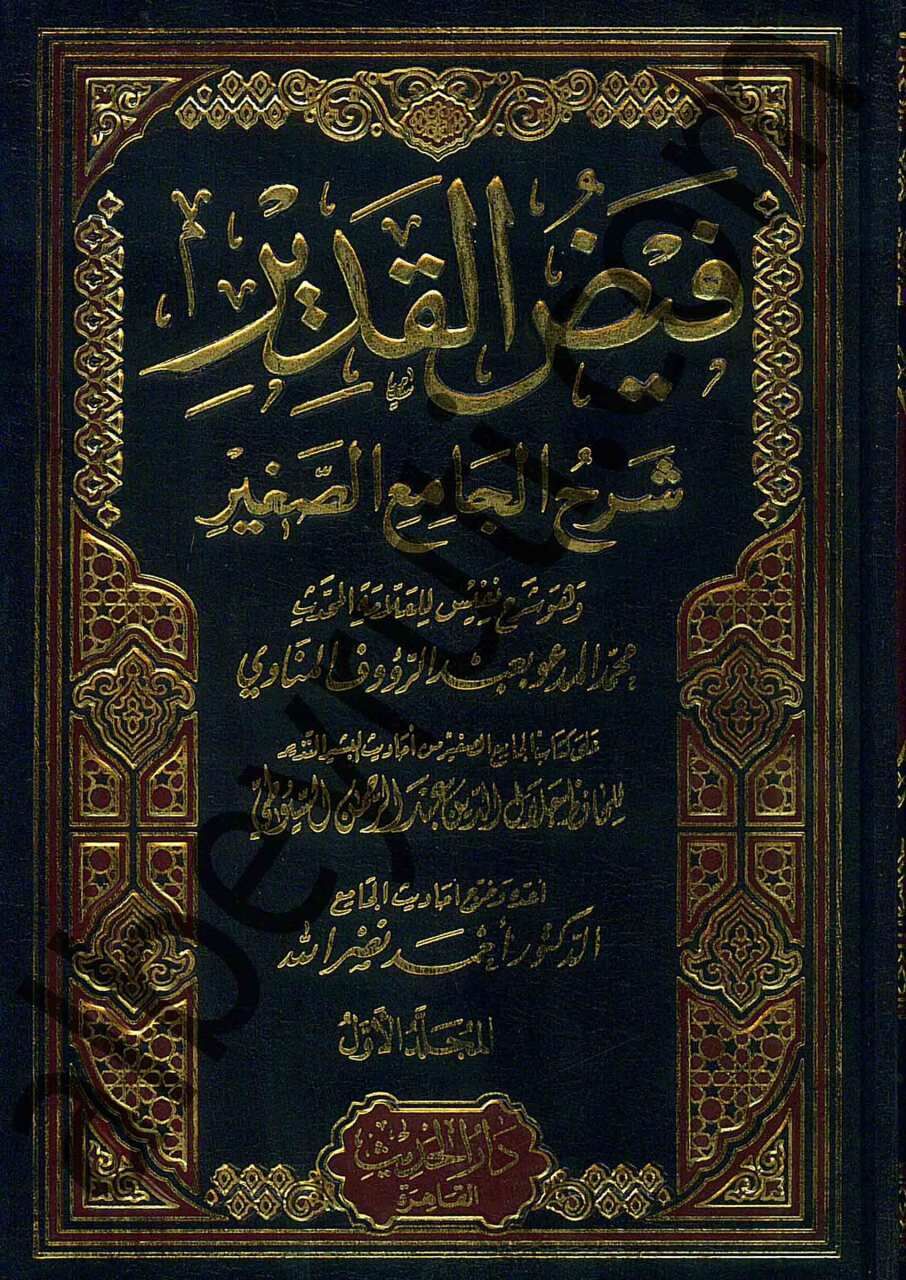 فَيْضُ القَدِيْرِ
شَرْحُ الجَامِعِ الصَّغِيْرِ
وَهُوَ شَرْحٌ نَفِيسٌ لِلعَلَّامَةِ المُحَدِّثِ
محمّد المدعو بعبد الرّؤوف المناوي
عَلَى كتاب الجامع الصغير من أحاديث البشير النذير
للحافظ جلال الدين عبد الرحمن السيوطي
أحاديث الجامع
الدّكتور أحْمَد نصر الله
المُجَلَّدُ الأَوَّلُ
دَارُ الحَدِيْث
القَاهِرَة